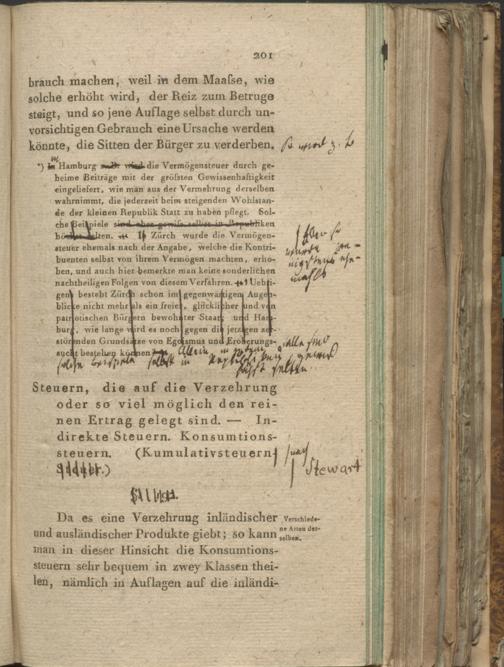 201
brauch machen, weil in dem Maaſse, wie
solche erhöht wird, der Reiz zum Betruge
steigt, und so jene Auflage selbst durch un-
vorsichtigen Gebrauch eine Ursache werden
könnte, die Sitten der Bürger zu verderben.
*) In Hamburg wird die Vermögensteuer durch ge-
heime Beiträge mit der gröſsten Gewissenhaftigkeit
eingeliefert, wie man aus der Vermehrung derselben
wahrnimmt, die jederzeit beim steigenden Wohlstan-
de der kleinen Republik Statt zu haben pflegt. Sol-
che Beispiele sind aber gewiſs selbst in Republiken
höchst selten. In Zürch wurde die Vermögen-
steuer ehemals nach der Angabe, welche die Kontri-
buenten selbst von ihrem Vermögen machten, erho-
ben, und auch hier bemerkte man keine sonderlichen
nachtheiligen Folgen von diesem Verfahren. Uebri-
gens besteht Zürch schon im gegenwärtigen Augen-
blicke nicht mehr als ein freier, glücklicher und von
patriotischen Bürgern bewohnter Staat; und Ham-
burg, wie lange wird es noch gegen die jetzigen zer-
störenden Grundsätze von Egoismus und Eroberungs-
sucht bestehen können
Steuern, die auf die Verzehrung
oder so viel möglich den rei-
nen Ertrag gelegt sind. — In-
direkte Steuern. Konsumtions-
steuern. (Kumulativsteuern
Stewart
Da es eine Verzehrung inländischer
Verschiede-
ne Arten der-
selben.
und ausländischer Produkte giebt; so kann
man in dieser Hinsicht die Konsumtions-
steuern sehr bequem in zwey Klassen thei-
len, nämlich in Auflagen auf die inländi-